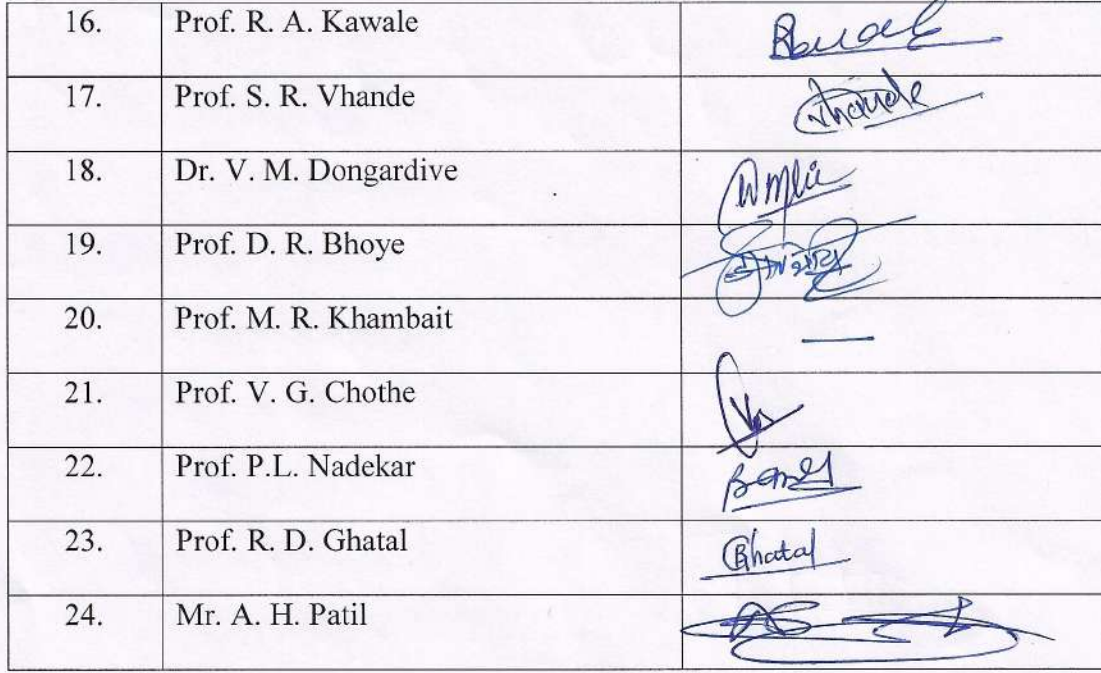 16. Prof. R. A. Kawale
17. Prof. S. R. Vhande
18. Dr. V. M. Dongardive
19. Prof. D. R. Bhoye
20. Prof. M. R. Khambait —
21. Prof. V. G. Chothe
22. Prof. P.L. Nadekar
23. Prof. R. D. Ghatal Ghatal
24. Mr. A. H. Patil